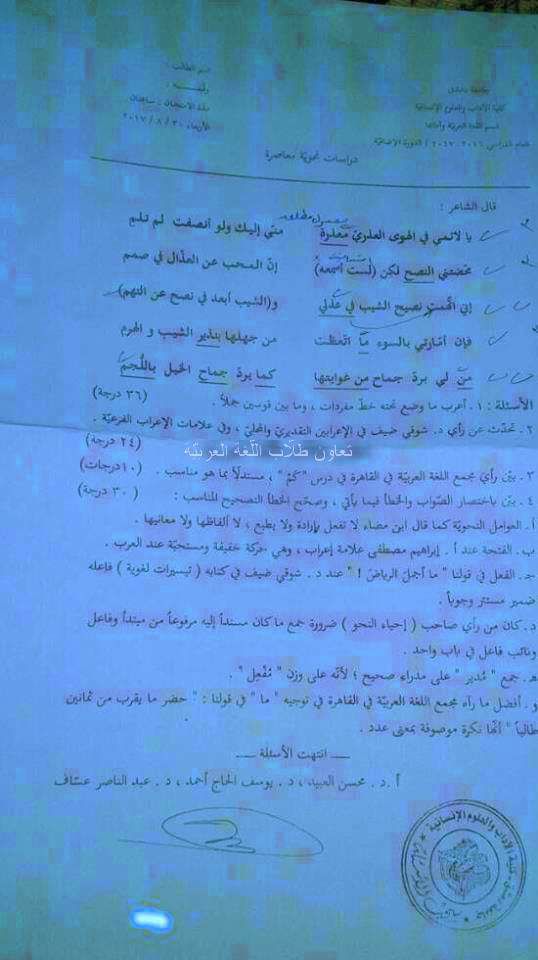 جامعة دمشق
كلية الآداب والعلوم الإنسانية
قسم اللغة العربية وآدابها
العام الدراسي ٢٠١٦ - ٢٠١٧ / الدورة الإضافية
اسم الطالب :
رقمه :
مدة الامتحان : ساعتان
الأربعاء ٣٠ / ٨ / ٢٠١٧
دراسات نحوية معاصرة
قال الشاعر :
يا لائمي في الهوى العذريّ معذرة مني إليك ولو أنصفت لم تلم
محضتني النصح لكن (لست أسمعه) إنّ المحب عن العذّال في صمم
إني اتّهمت نصيح الشيب في عذلي و(الشيب أبعد في نصح عن التهم)
فإن أمّارتي بالسوء ما اتعظت من جهلها بنذير الشيب والهرم
من لي بردّ جماح من غوايتها كما يردّ جماح الخيل باللُّجم
الأسئلة : ١ ـ أعرب ما وضع تحته خطّ مفردات ، وما بين قوسين جملاً . (٣٦ درجة)
٢ ـ تحدّث عن رأي د. شوقي ضيف في الإعرابين التقديريّ والمحليّ ، وفي علامات الإعراب الفرعيّة .
(٢٤ درجة)
تعاون طلّاب اللّغة العربيّة
٣ ـ بيّن رأي مجمع اللغة العربيّة في القاهرة في درس "كمْ" ، مستدلاً بما هو مناسب . (١٠ درجات)
٤ ـ بيّن باختصار الصّواب والخطأ فيما يأتي ، وصحّح الخطأ التصحيح المناسب : (٣٠ درجة)
أ ـ العوامل النحويّة كما قال ابن مضاء لا تفعل بإرادة ولا بطبع ؛ لا ألفاظها ولا معانيها .
ب ـ الفتحة عند أ . إبراهيم مصطفى علامة إعراب ، وهي حركة خفيفة ومستحبّة عند العرب .
جـ ـ الفعل في قولنا " ما أجملَ الرياضَ ! " عند د . شوقي ضيف في كتابه ( تيسيرات لغوية ) فاعله
ضمير مستتر وجوباً .
د ـ كان من رأي صاحب ( إحياء النحو ) ضرورة جمع ما كان مسنداً إليه مرفوعاً من مبتدأ وفاعل
ونائب فاعل في باب واحد .
هـ ـ جمع " مُدير " على مدراء صحيح ؛ لأنّه على وزن " مُفْعِل " .
و ـ أفضل ما رآه مجمع اللغة العربيّة في القاهرة في توجيه " ما " في قولنا : " حضر ما يقرب من ثمانين
طالباً " أنّها نكرة موصوفة بمعنى عدد .
ـــــ انتهت الأسئلة ـــــ
أ . د . محسن العبيد ، د . يوسف الحاج أحمد ، د . عبد الناصر عسّاف